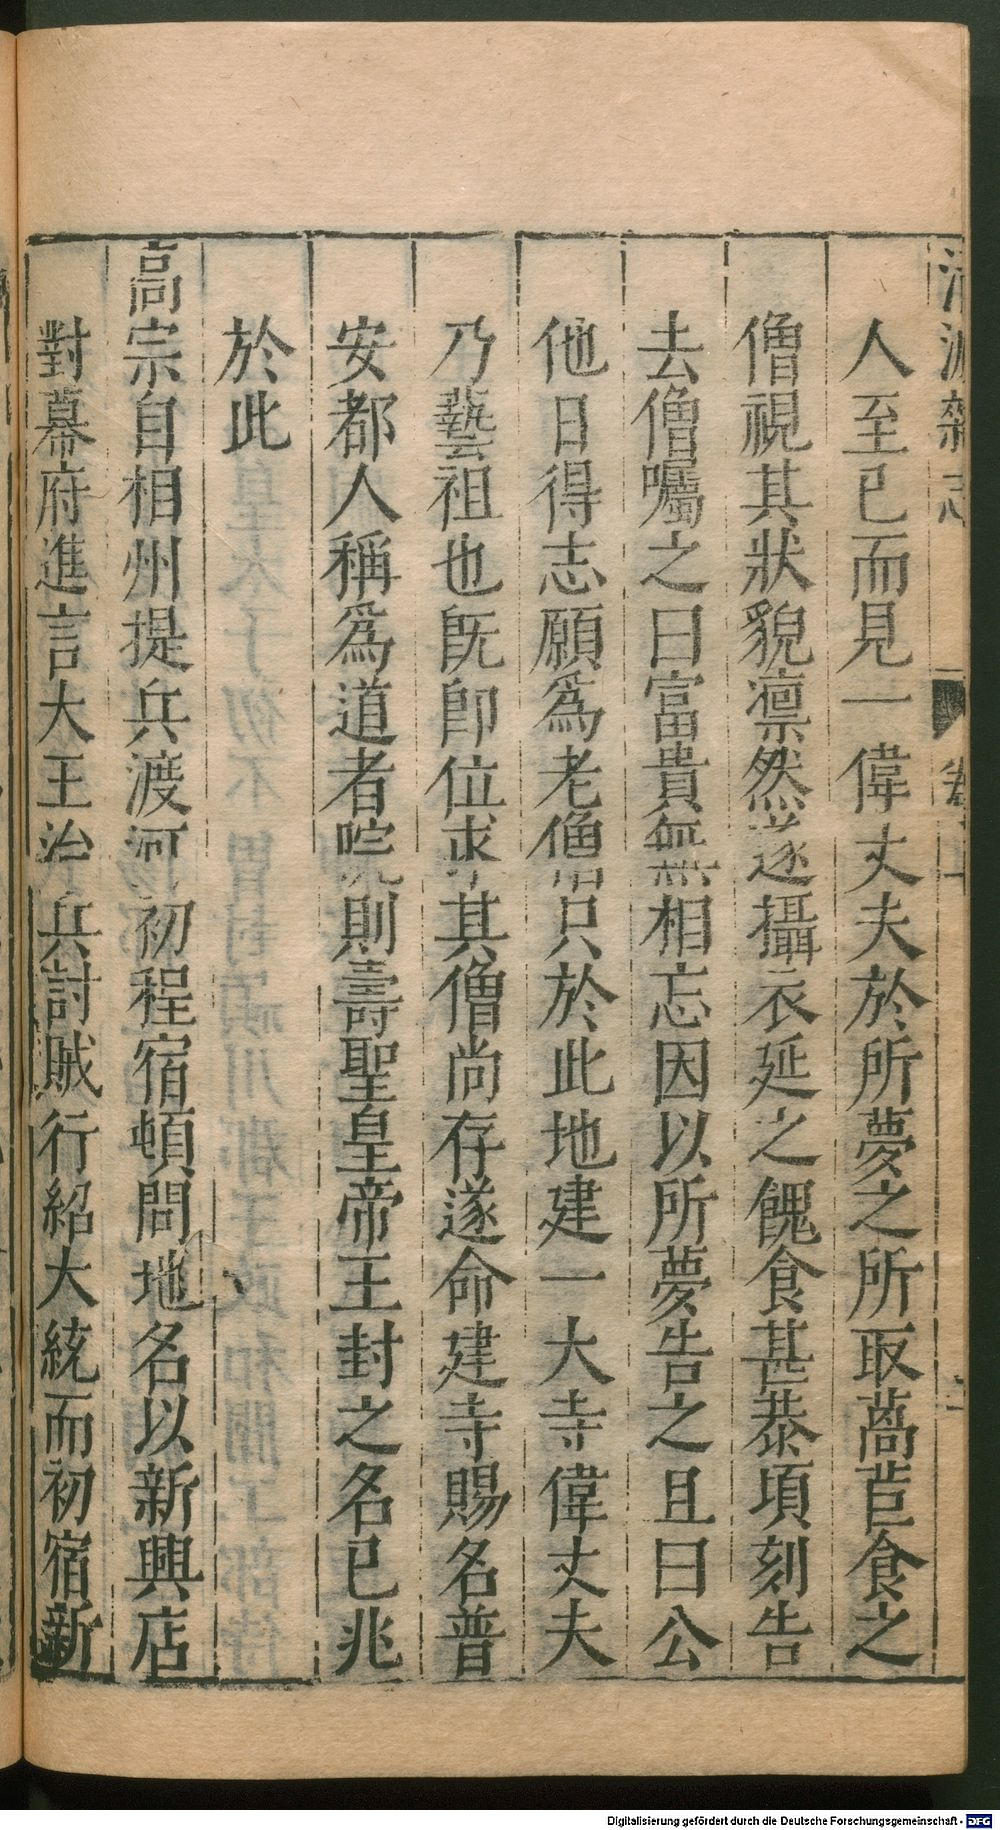 清波雜志
人至已而見一偉丈夫於所夢之所取萵苣食之
僧視其狀貌凛然遂攝衣延之餽食甚恭頃刻告
去僧囑之曰富貴無相忘因以所夢告之且曰公
他日得志願爲老僧只於此地建一大寺偉丈夫
乃藝祖也旣卽位求其僧尚存遂命建寺賜名普
安都人稱爲道者院則壽聖皇帝王封之名已兆
於此
高宗自相州提兵渡河初程宿頓問地名以新興店
對幕府進言大王治兵討賊行紹大統而初宿新
Digitalisierung gefördert durch die Deutsche Forschungsgemeinschaft - DFG